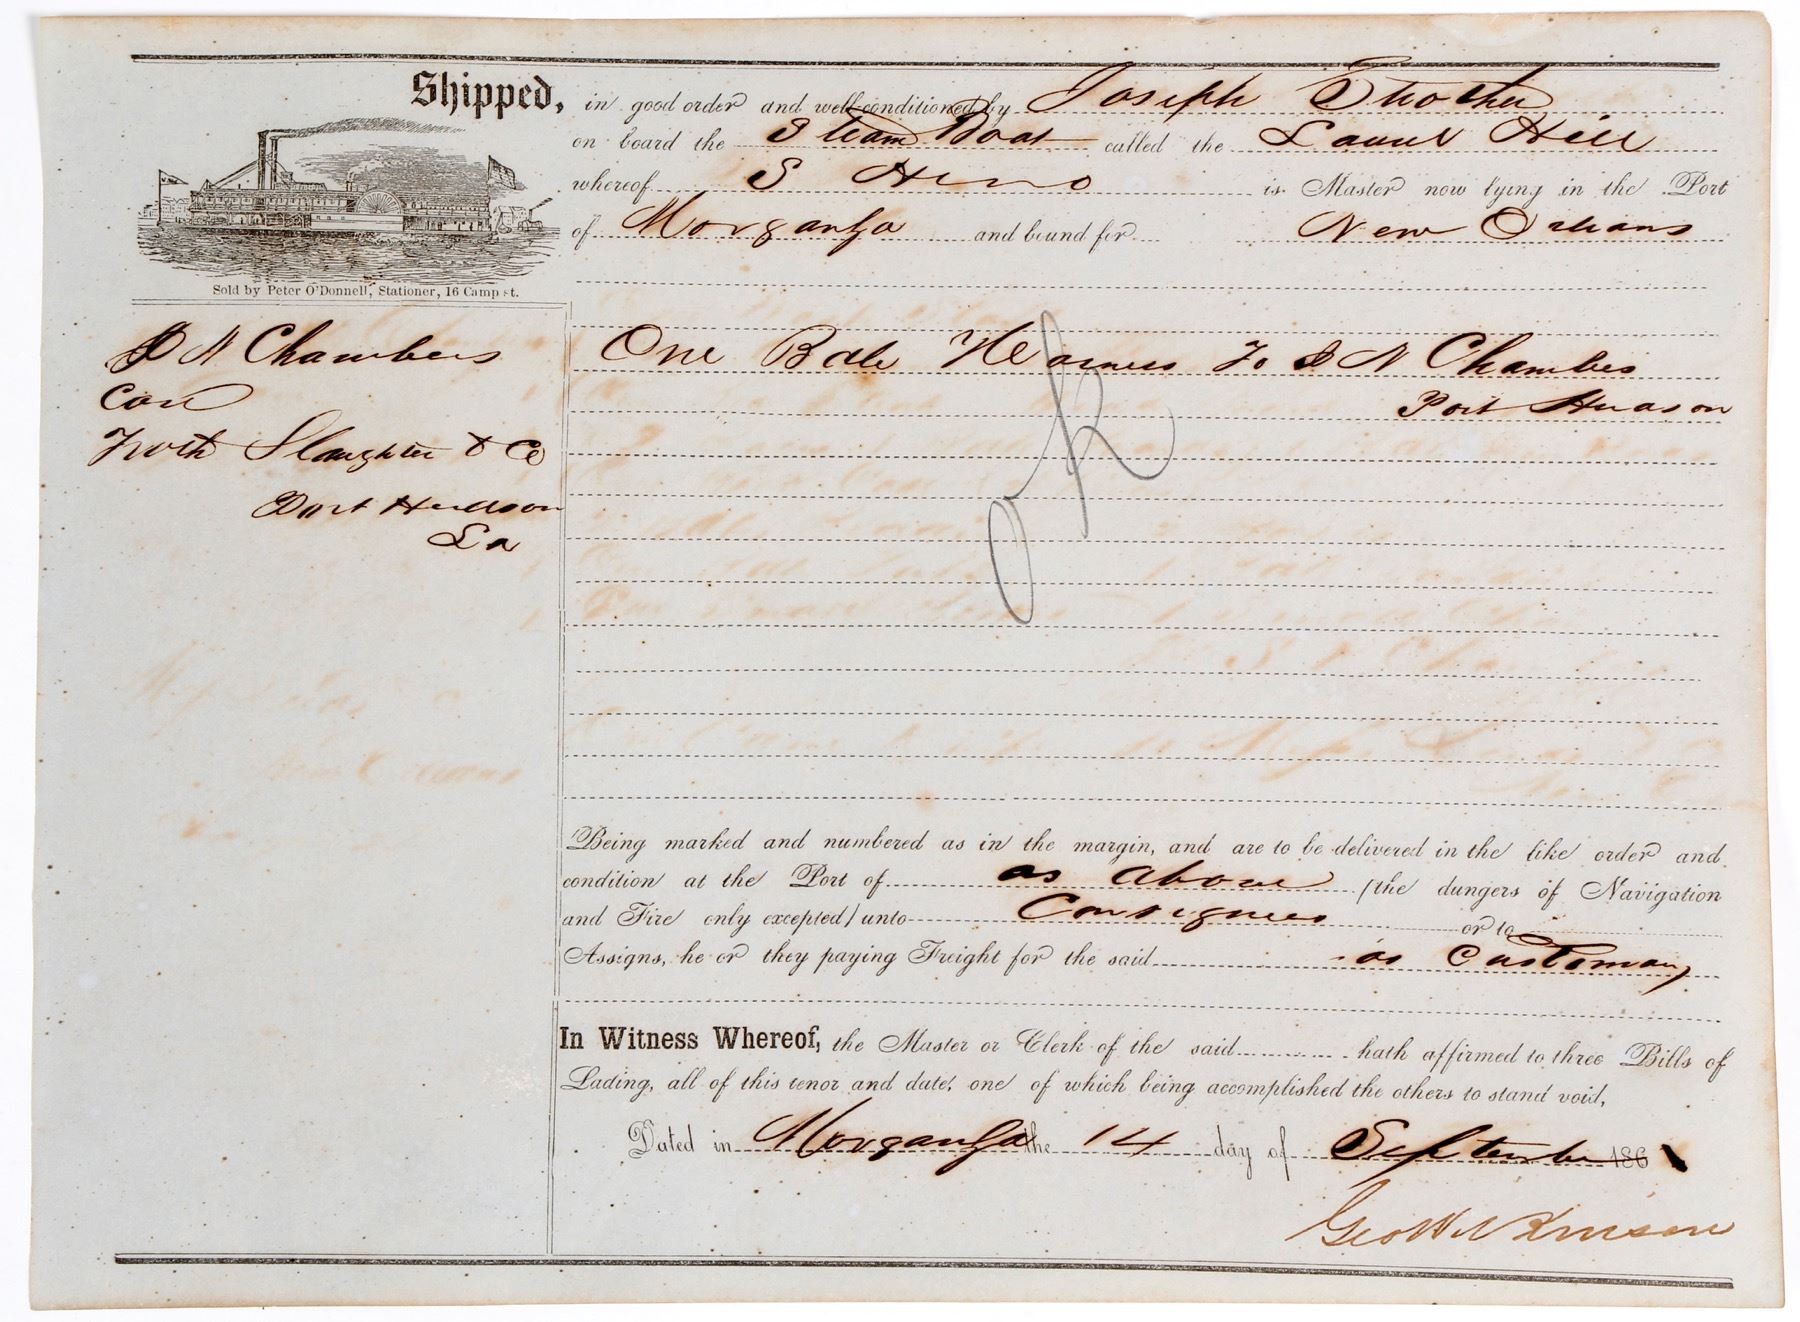 Shipped, in good order and well-conditioned by Joseph Strother
on board the Steam Boat called the Laurel Hill
whereof S Hino is Master now lying in the Port
of Morganza and bound for New Orleans
Sold by Peter O'Donnell, Stationer, 16 Camp st.
J N Chambers
Care
Frith Slaughter & Co
Port Hudson
La
One Bale Harness To J N Chambers
Port Hudson
ok
Being marked and numbered as in the margin, and are to be delivered in the like order and
condition at the Port of as above /the dangers of Navigation
and Fire only excepted/ unto Consignees or to
Assigns, he or they paying Freight for the said as Customary
In Witness Whereof, the Master or Clerk of the said hath affirmed to three Bills of
Lading, all of this tenor and date, one of which being accomplished the others to stand void,
Dated in Morganza the 14 day of September 1861
Geo